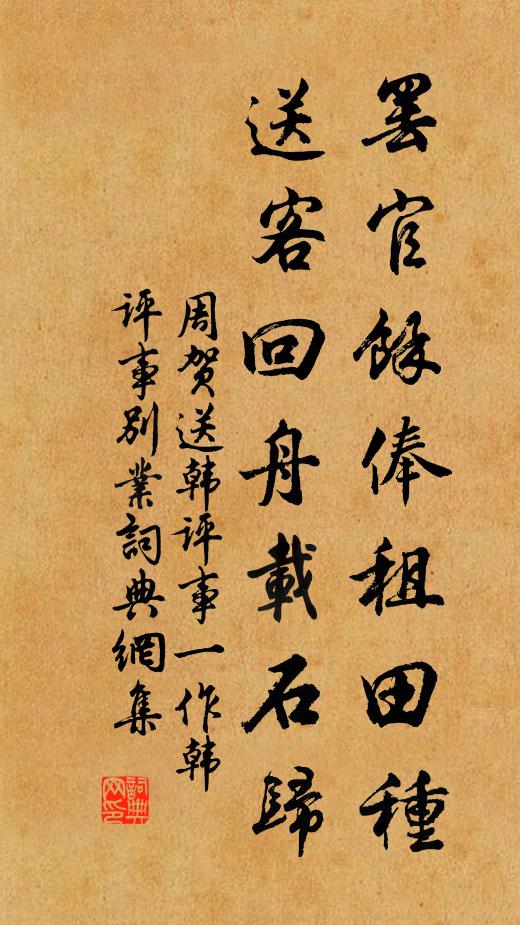 罢官餘俸租田種
送客回舟載石歸
周贺送韩评事一作韩
评事别業詞典網集
詞典网印